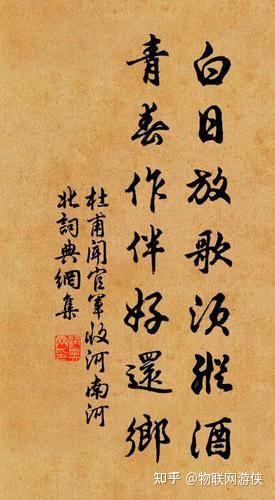 白日放歌须縱酒
青春作伴好還鄉
杜甫聞官軍收河南河
北詞典網集
知乎 @物联网游侠